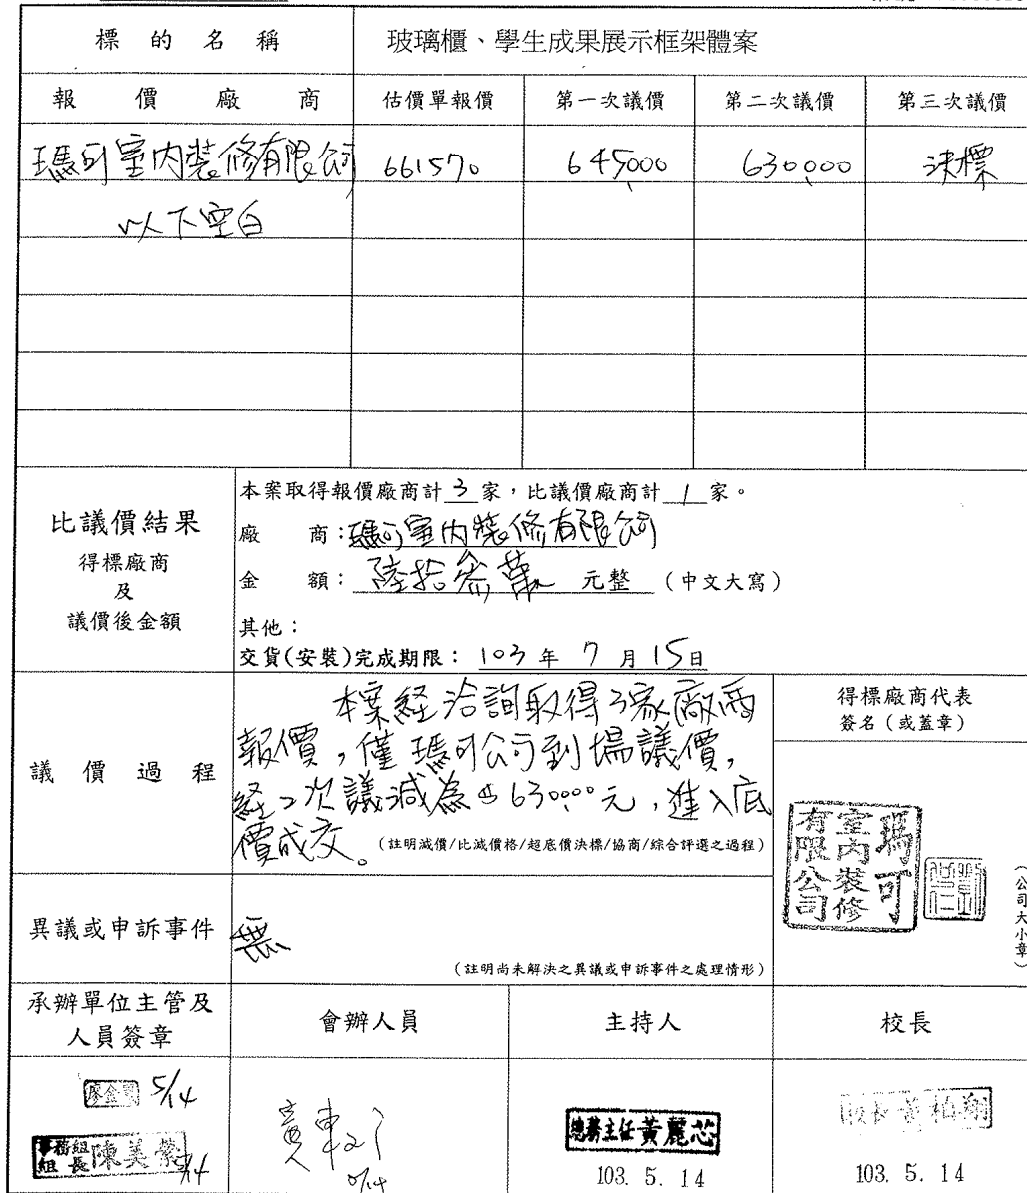 標的名稱 玻璃櫃、學生成果展示框架體案
報價廠商 估價單報價 第一次議價 第二次議價 第三次議價
瑪可室內裝修有限公司 661570 645,000 630,000 決標
以下空白
本案取得報價廠商計 3 家，比議價廠商計 1 家。
比議價結果
得標廠商
及
議價後金額
廠商：瑪可室內裝修有限公司
金額：陸拾叁萬 元整（中文大寫）
其他：
交貨(安裝)完成期限： 103 年 7 月 15日
議價過程
本案経洽詢取得3家廠商
報價，僅瑪可公司到場議價，
経2次議減為$630000元，進入底
價成交。
(註明減價/比減價格/超底價決標/協商/綜合評選之過程)
得標廠商代表
簽名（或蓋章）
瑪可
室內裝修
有限公司
（公司大小章）
異議或申訴事件 無
(註明尚未解決之異議或申訴事件之處理情形)
承辦單位主管及
人員簽章
會辦人員 主持人 校長
5/14
事務組
組長 陳美縈 5/14
5/14
總務主任 黃麗芯
103. 5. 14
校長 黃柏翔
103. 5. 14